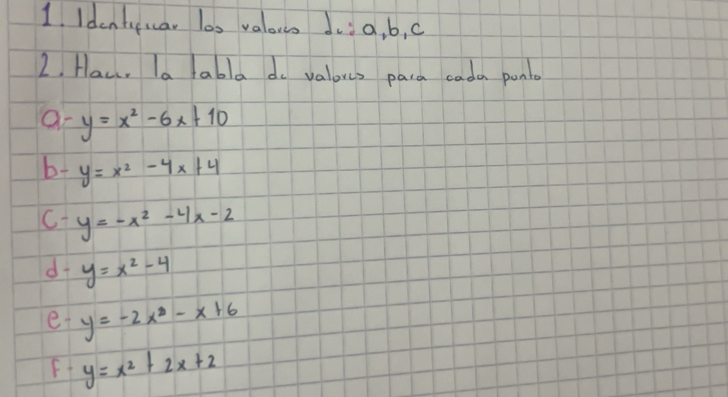 1. Identificar los valores de: a,b,c
2. Hacer la tabla de valores para cada punto
a- y = x² -6x+10
b- y = x² -4x+4
c- y = -x² -4x-2
d- y = x² -4
e- y = -2x² - x+6
f- y = x² + 2x+2